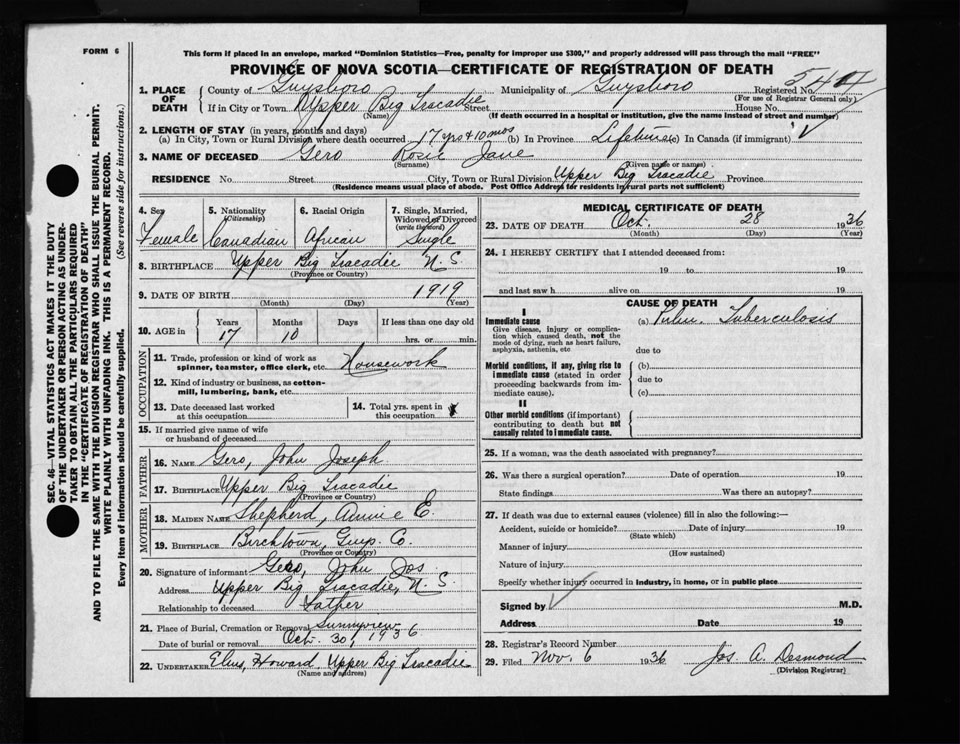 FORM 6
This form if placed in an envelope, marked "Dominion Statistics—Free, penalty for improper use $300," and properly addressed will pass through the mail "FREE"
PROVINCE OF NOVA SCOTIA—CERTIFICATE OF REGISTRATION OF DEATH
1. PLACE OF DEATH
County of Guysboro Municipality of Guysboro Registered No.
(For use of Registrar General only)
If in City or Town Upper Big Tracadie Street House No.
(Name) (If death occurred in a hospital or institution, give the name instead of street and number)
2. LENGTH OF STAY (in years, months and days)
(a) In City, Town or Rural Division where death occurred 17 yrs + 10 mos (b) In Province Lifetime (c) In Canada (if immigrant)
3. NAME OF DECEASED Gero Rosie Jane
(Surname) (Given name or names)
RESIDENCE No. Street City, Town or Rural Division Upper Big Tracadie Province
(Residence means usual place of abode. Post Office Address for residents in rural parts not sufficient)
4. Sex Female
5. Nationality (Citizenship) Canadian
6. Racial Origin African
7. Single, Married, Widowed or Divorced (write the word) Single
8. BIRTHPLACE Upper Big Tracadie N. S.
(Province or Country)
9. DATE OF BIRTH 1919
(Month) (Day) (Year)
10. AGE in Years Months Days If less than one day old
17 10 hrs. or min.
OCCUPATION
11. Trade, profession or kind of work as spinner, teamster, office clerk, etc. Housework
12. Kind of industry or business, as cotton-mill, lumbering, bank, etc.
13. Date deceased last worked at this occupation
14. Total yrs. spent in this occupation
15. If married give name of wife or husband of deceased
FATHER
16. NAME Gero, John Joseph
17. BIRTHPLACE Upper Big Tracadie
(Province or Country)
MOTHER
18. MAIDEN NAME Shepherd, Annie E.
19. BIRTHPLACE Birchtown, Guys. Co.
(Province or Country)
20. Signature of informant Gero, John Jos.
Address Upper Big Tracadie, N. S.
Relationship to deceased Father
21. Place of Burial, Cremation or Removal Sunnyview
Date of burial or removal Oct. 30, 1936
22. UNDERTAKER Howard Upper Big Tracadie
(Name and address)
MEDICAL CERTIFICATE OF DEATH
23. DATE OF DEATH Oct. 28 1936
(Month) (Day) (Year)
24. I HEREBY CERTIFY that I attended deceased from:
19 to 19
and last saw h alive on 19
CAUSE OF DEATH
I
Immediate cause
Give disease, injury or complication which caused death, not the mode of dying, such as heart failure, asphyxia, asthenia, etc
(a) Pulm. Tuberculosis
due to
Morbid conditions, if any, giving rise to immediate cause (stated in order proceeding backwards from immediate cause).
(b)
due to
(c)
II
Other morbid conditions (if important) contributing to death but not causally related to immediate cause.
25. If a woman, was the death associated with pregnancy?
26. Was there a surgical operation? Date of operation 19
State findings Was there an autopsy?
27. If death was due to external causes (violence) fill in also the following:—
Accident, suicide or homicide? Date of injury 19
(State which)
Manner of injury
(How sustained)
Nature of injury
Specify whether injury occurred in industry, in home, or in public place
Signed by M.D.
Address Date 19
28. Registrar's Record Number
29. Filed Nov. 6 1936 Jos. A. Desmond
(Division Registrar)
SEC. 46—VITAL STATISTICS ACT MAKES IT THE DUTY
OF THE UNDERTAKER OR PERSON ACTING AS UNDER-
TAKER TO OBTAIN ALL THE PARTICULARS REQUIRED
IN THE "CERTIFICATE OF REGISTRATION OF DEATH"
AND TO FILE THE SAME WITH THE DIVISION REGISTRAR WHO SHALL ISSUE THE BURIAL PERMIT.
WRITE PLAINLY WITH UNFADING INK. THIS IS A PERMANENT RECORD.
Every item of information should be carefully supplied. (See reverse side for instructions.)